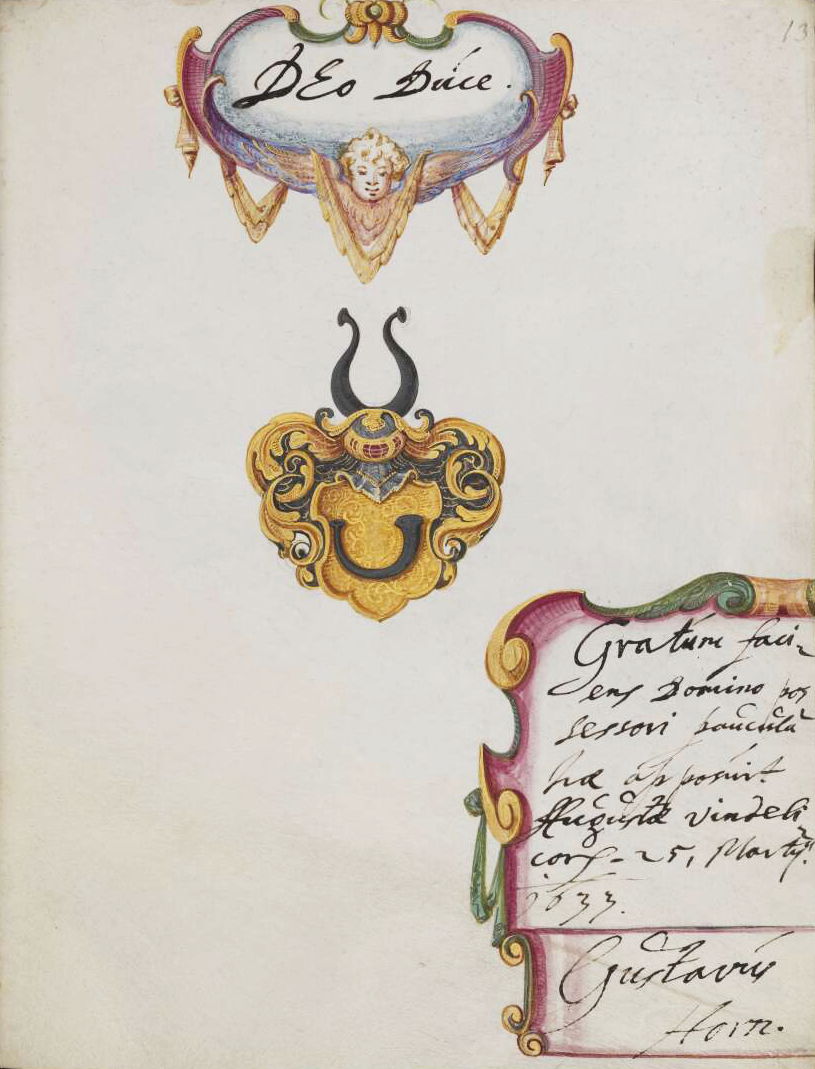 13
DEo Duce.
Gratum faci-
ens Domino pos
sessori paucula
hæ apposuit
Augustæ Vindeli
cor. 25, Martij.
1633.
Gustavus
Horn.